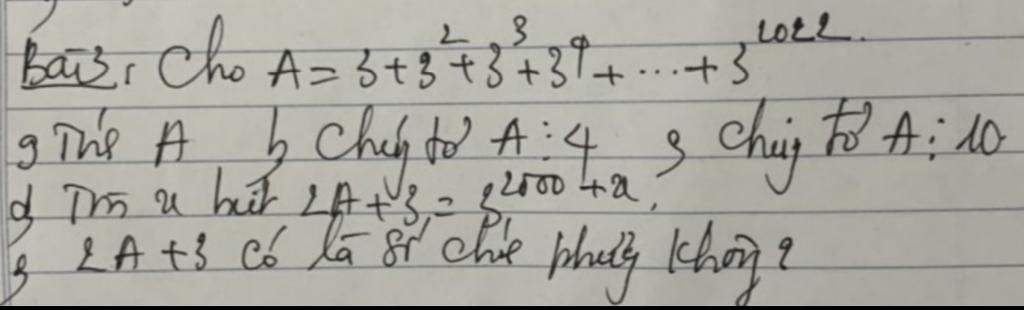 Bài 3: Cho A = 3 + 3² + 3³ + 3⁴ + ... + 3²⁰²².
a, Tính A b, Chứng tỏ A ⋮ 4 c, Chứng tỏ A ⋮ 10
d, Tìm x biết 2A + 3 = 3²⁰⁰⁰ ⁺ ˣ.
e, 2A + 3 có là số chính phương không?